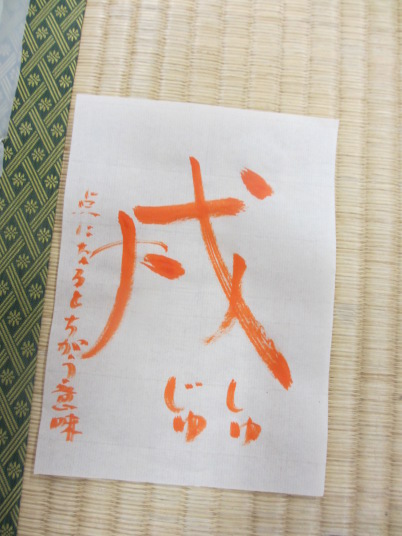 戍
しゅ
じゅ
点になるとちがう意味